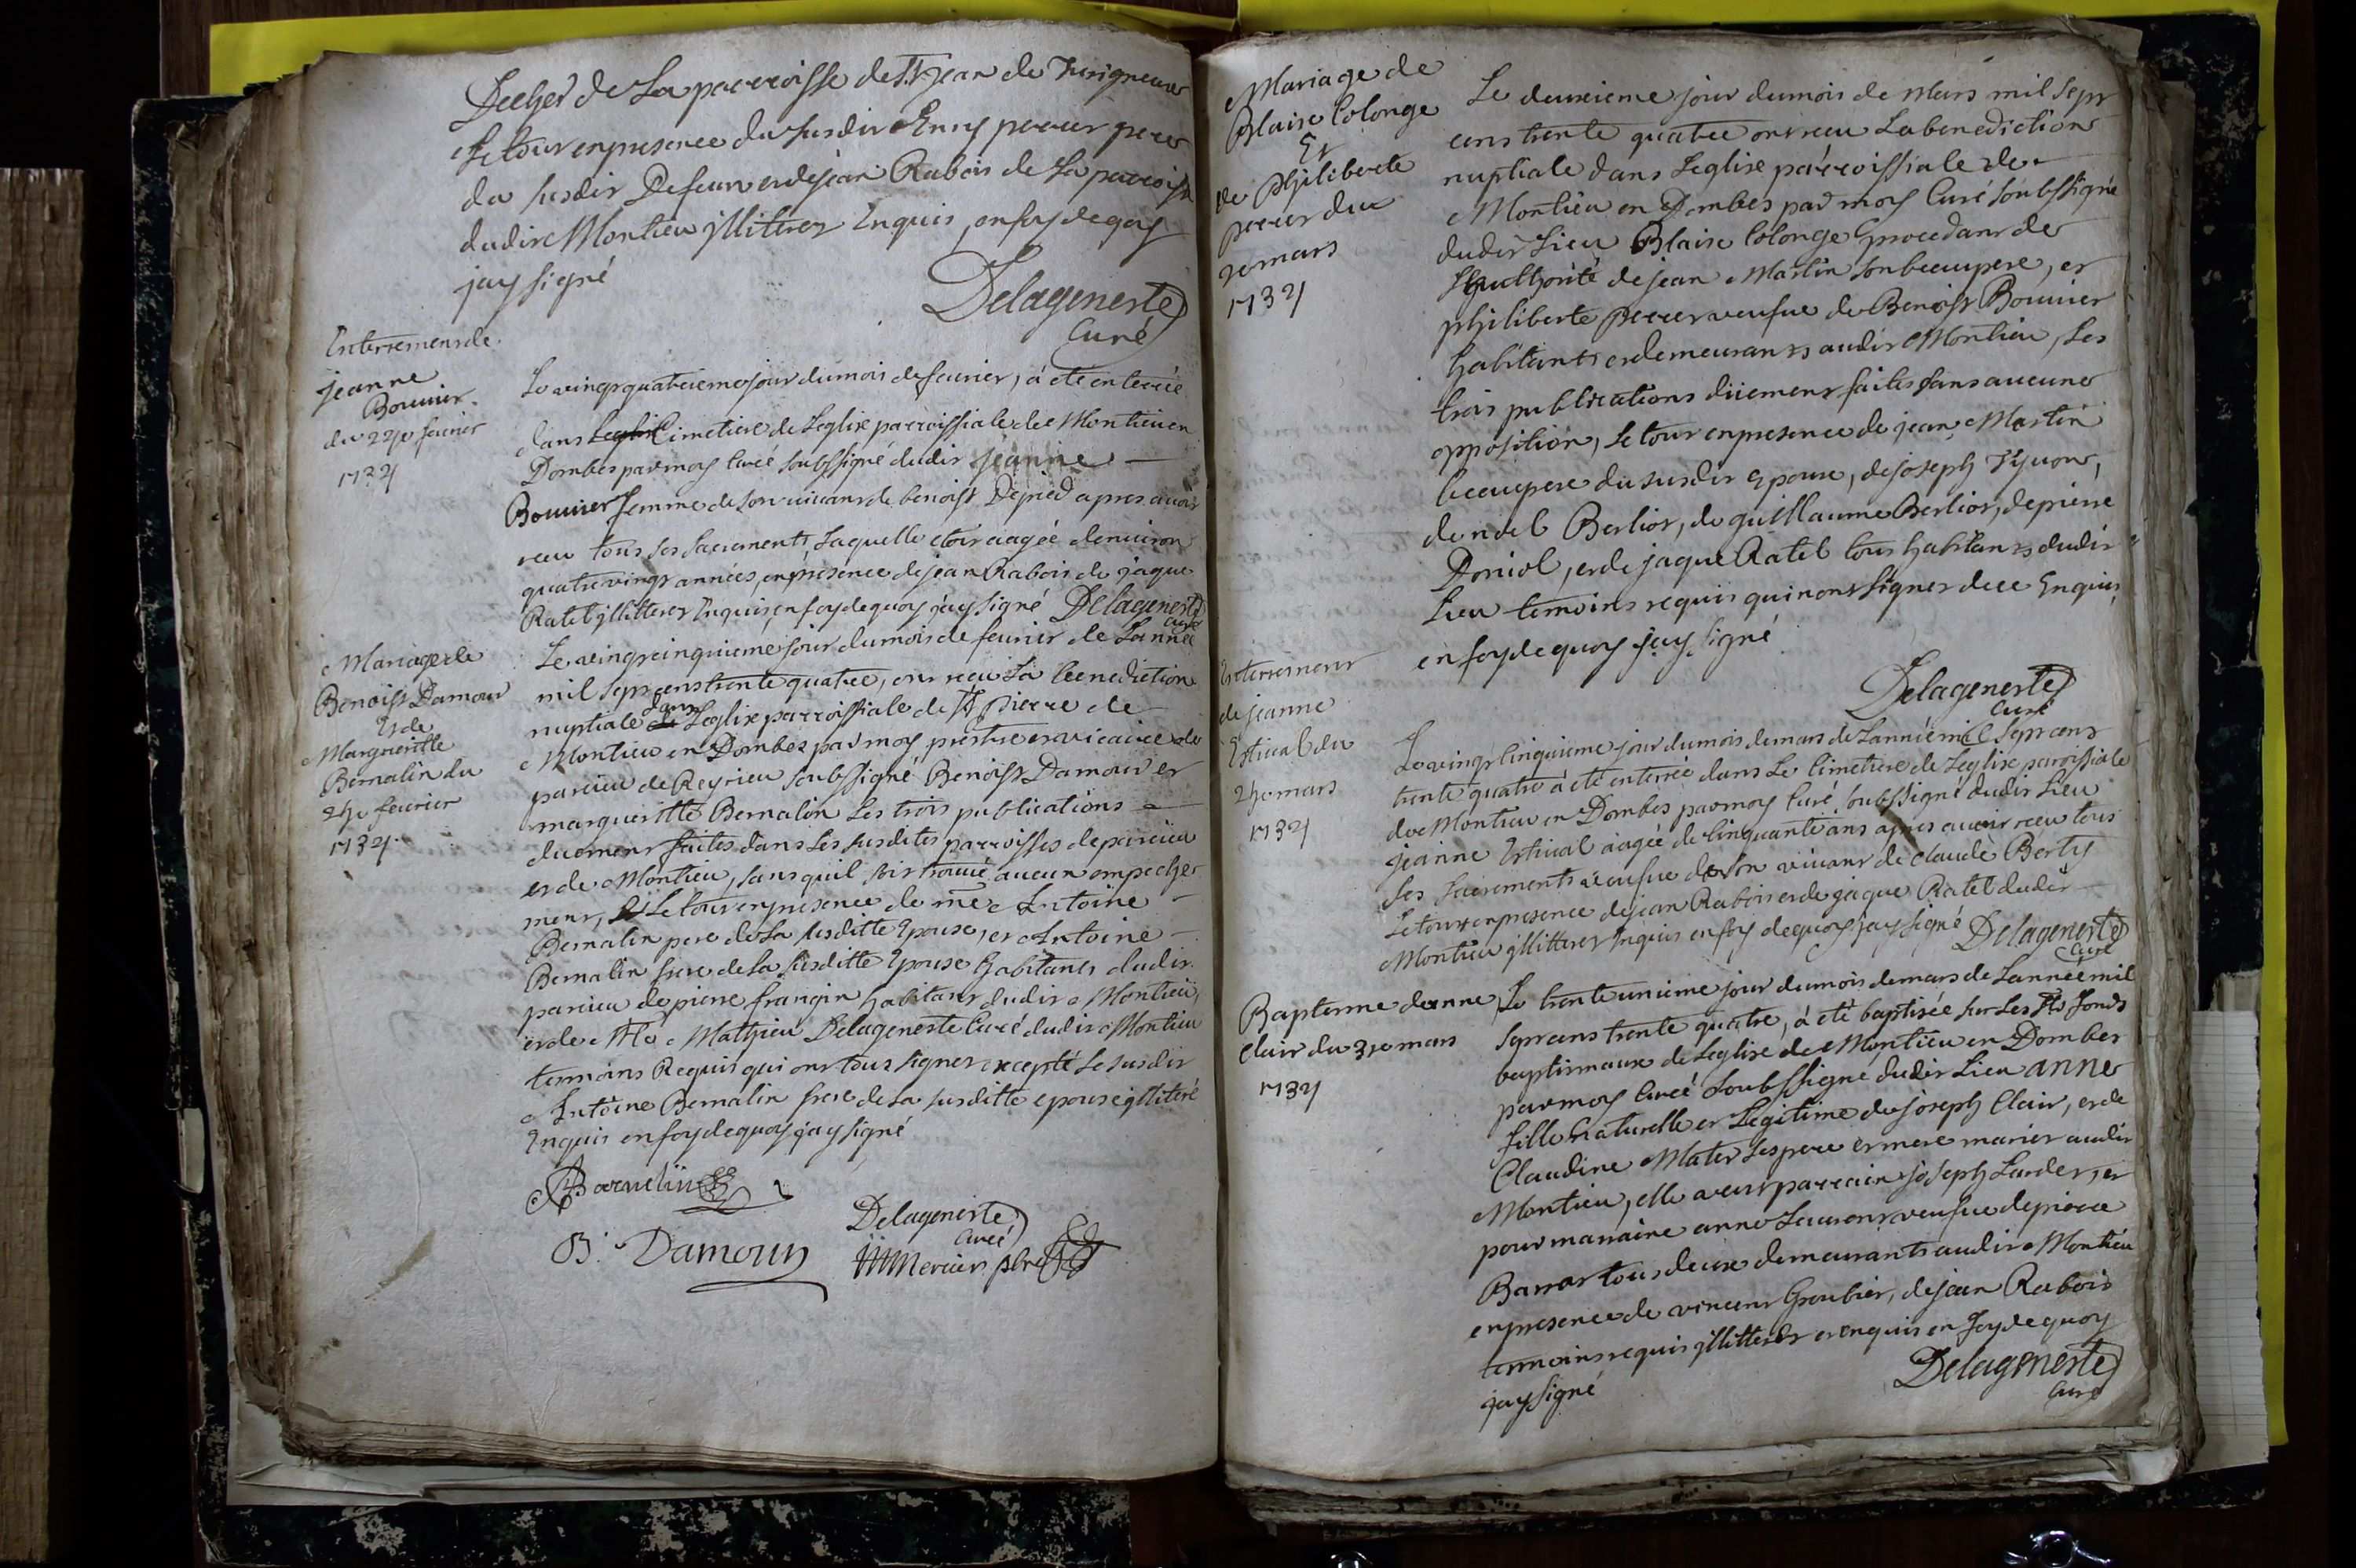 de La parroisse de St jean de Turigneux
Le tout en presence du susdit Enny perrer pere
du susdit Defunt et de jean Rabois de La parroisse
dudit Montieu jlliterez Enquis, en foy de quoy
jay signé
Delageneste
Curé
Enterrement de
jeanne
Bouuier
du 24e feurier
1734
Le vingt quatrieme jour du mois de feurier, à eté enterrée
dans Cimetiere de Leglise parroissiale de Montieu en
Dombes par moy Curé soubssigné dudit jeanne
Bouuier femme de son uiuant de benoist Depied apres auoir
receu tous ses sacrements Laquelle etoit aagée denuiron
quatre vingt années, en presence de jean Rabois de jaque
Ratel jlliterez Enquis, en foy de quoy jay signé Delageneste
Curé
Mariage de
Benoist Damour
Et de
Margueritte
Bernalin du
25e feurier
1734
Le vingt cinquieme jour du mois de feurier de Lannée
mil sept cens trente quatre, ont receu La benediction
nuptiale dans Leglise parroissiale de St pierre de
Montieu en Dombes par moy prestre et vicaire de
parcieu de Reyrieu soubssigné Benoist Damour et
margueritte Bernalin Les trois publications
duement faites dans Les susdites parroisses de parcieu
et de Montieu, sans quil soit trouué aucun empeche
ment, Le tout en presence de me Antoine
Bernalin pere de La susditte Epouse, et Antoine
Bernalin frere de La susditte Epouse habitants dudit
parcieu de pierre frangin habitant dudit Montieu,
et de Mre Mathieu Delageneste Curé dudit Montieu
temoins Requis qui ont tous signez excepté Le susdit
Antoine Bernalin frere de La susditte epouse jlliteré
Enquis en foy de quoy jay signé
Bernelin
Delageneste
Curé
B. Damour
Mercier pbre
Mariage de
Blaise Colonge
Et
de philiberte
perrer du
2e mars
1734
Le deuxieme jour du mois de Mars mil sept
cens trente quatre ont receu La benediction
nuptiale dans Leglise parroissiale de
Montieu en Dombes par moy Curé soubssigné
dudit Lieu Blaise Colonge procedant de
Lauthorité de jean Martin son beaupere, et
philiberte perrer veufue de Benoist Bouuier
habitants et demeurants audit Montieu, Les
trois publications düement faites sans aucune
opposition, Le tout en presence de jean Martin
beaupere du susdit Epoux, de joseph
de noel Berlior, de guillaume Berlior, de pierre
Doriol, et de jaque Ratel tous habitants dudit
Lieu temoins requis qui nont signez de ce Enquis,
en foy de quoy jay signé
Delageneste
Curé
Enterrement
de jeanne
Estiual du
25e mars
1734
Le vingt Cinquieme jour du mois de mars de Lannée mil sept cens
trente quatre à eté enterrée dans Le Cimetiere de Leglise paroissiale
de Montieu en Dombes par moy Curé soubssigné dudit Lieu
jeanne Estiual aagée de Cinquante ans apres auoir receu tous
ses sacrements veufue de son viuant de claude Berty
Le tout en presence de jean Rabois et de jaque Ratel dudit
Montieu jllitterez Enquis en foy de quoy jay signé Delageneste
Curé
Baptesme danne
Clair du 31e mars
1734
Le trente unieme jour du mois de mars de Lannée mil
sept cens trente quatre, à eté baptisée sur Les Sts fonds
baptismaux de Leglise de Montieu en Dombes
par moy Curé soubssigné dudit Lieu anne
fille naturelle et Legitime de joseph Clair, et de
Claudine Mater ses pere et mere mariez audit
Montieu, elle a eut parrain joseph Larder, et
pour marraine anne Laurent veufue de pierre
Barrat tous deux demeurants audit Montieu
en presence de vincent Groubier, de jean Rabois
temoins requis jllitterez et enquis en foy de quoy
jay signé
Delageneste
Curé